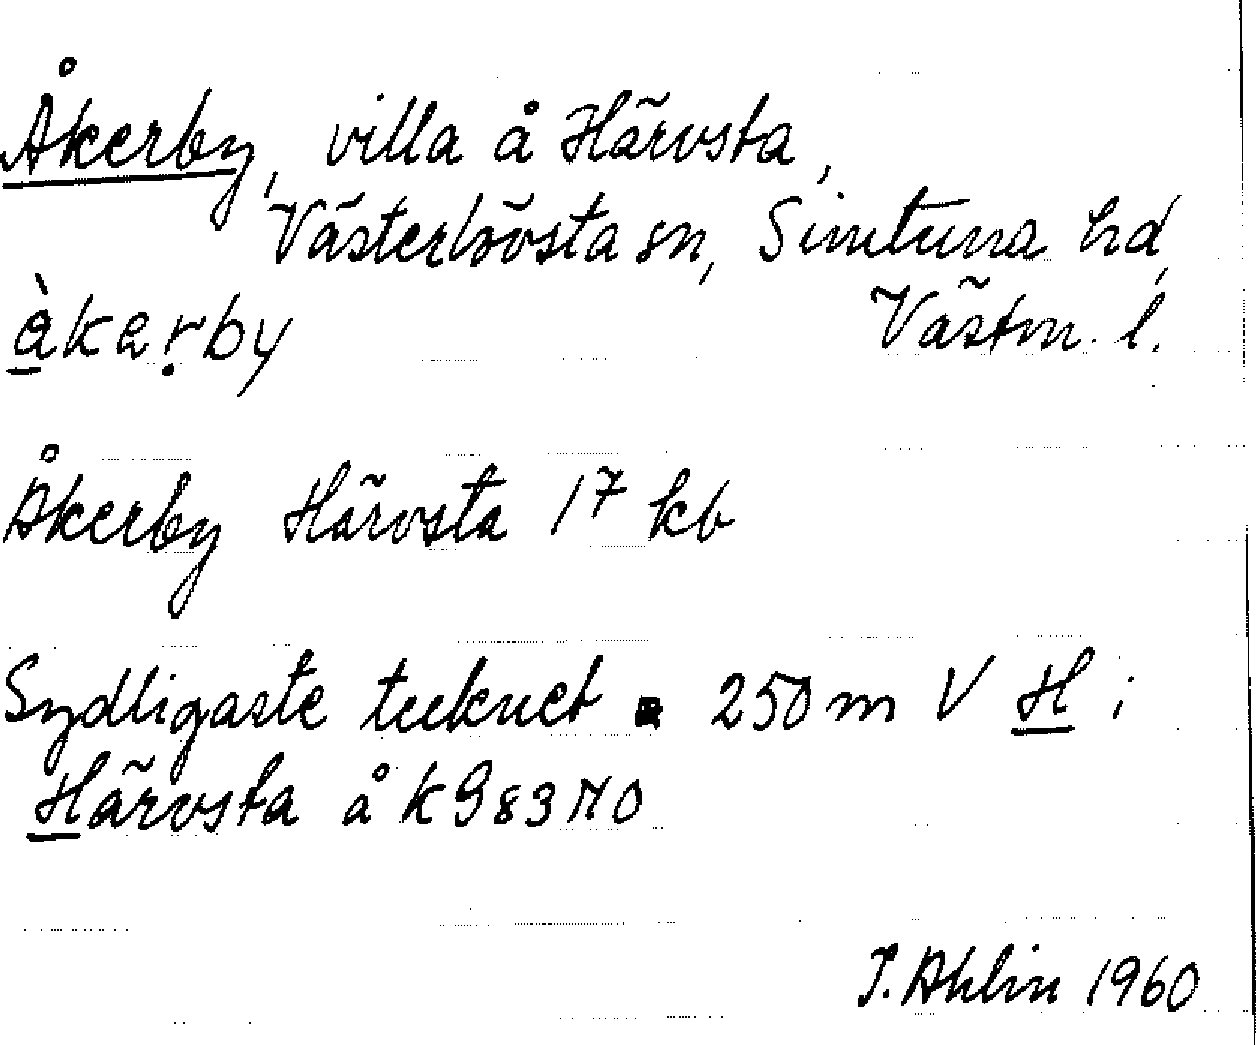 Åkerby, villa å Härvsta,
Västerlövsta sn, Simtuna hd,
àkerby Västm. l.
Åkerby Härvsta 17 kb
Sydligaste tecknet ▪ 250 m V H i
Härvsta å k 983 NO
P. Ahlin 1960